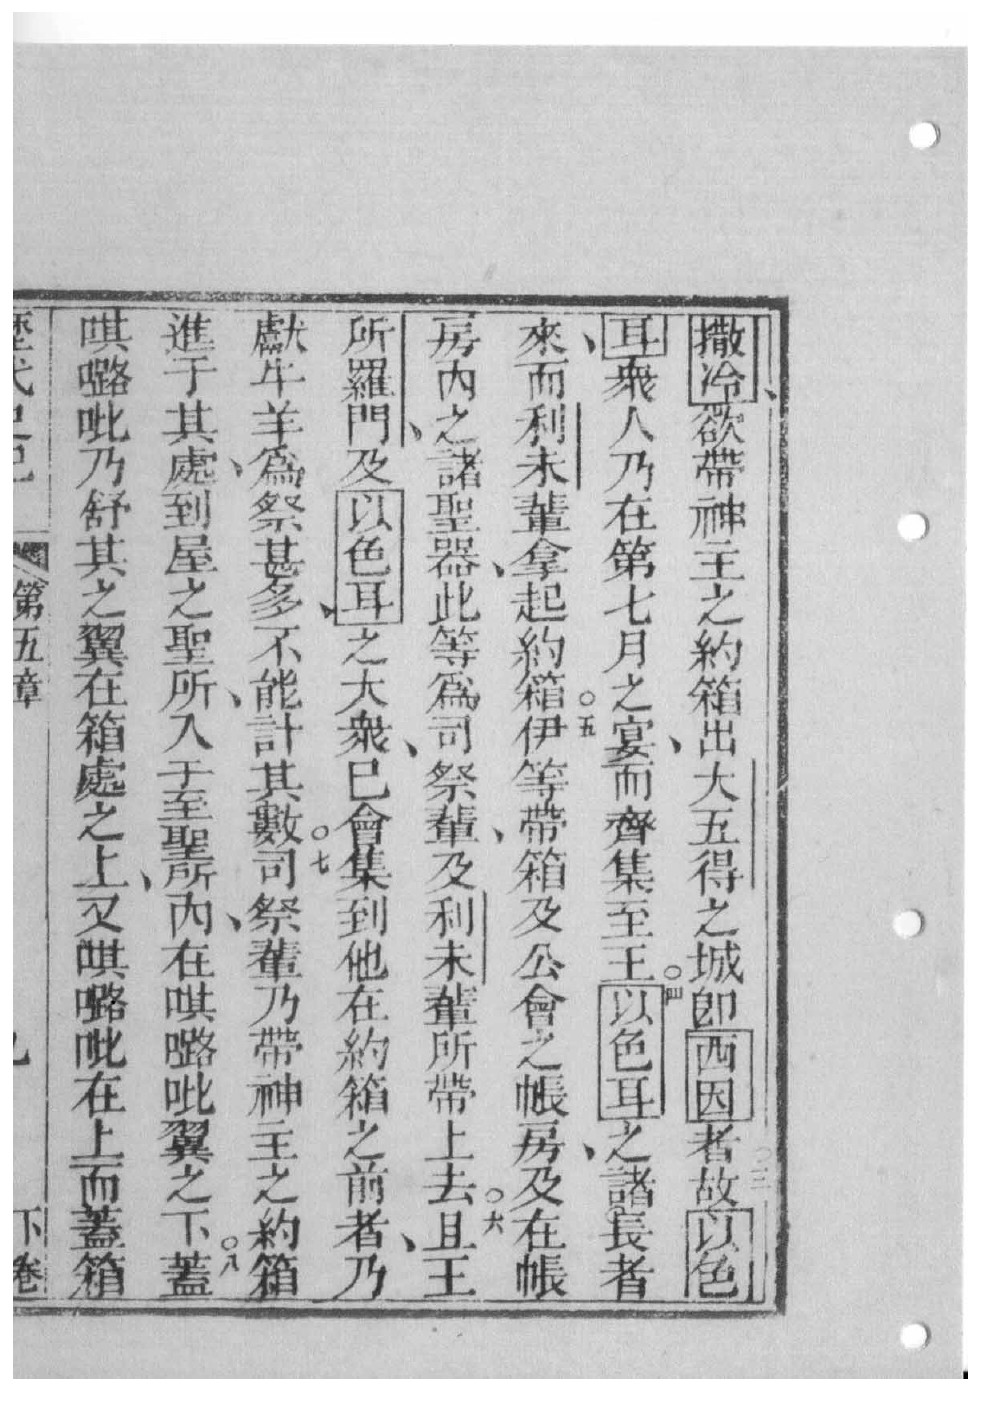 撒冷欲帶神主之約箱出大五得之城卽西因者故以色
耳衆人乃在第七月之宴而齊集至王○四以色耳之諸長者
來而利未輩拿起約箱○五伊等帶箱及公會之帳房及在帳
房內之諸聖器此等爲司祭輩及利未輩所帶上去○六且王
所羅門及以色耳之大衆已會集到他在約箱之前者乃
獻牛羊爲祭甚多不能計其數○七司祭輩乃帶神主之約箱
進于其處到屋之聖所入于至聖所內在㖵嚕吡翼之下○八蓋
㖵嚕吡乃舒其之翼在箱處之上又㖵嚕吡在上而蓋箱
歷代史記 第五章 下卷